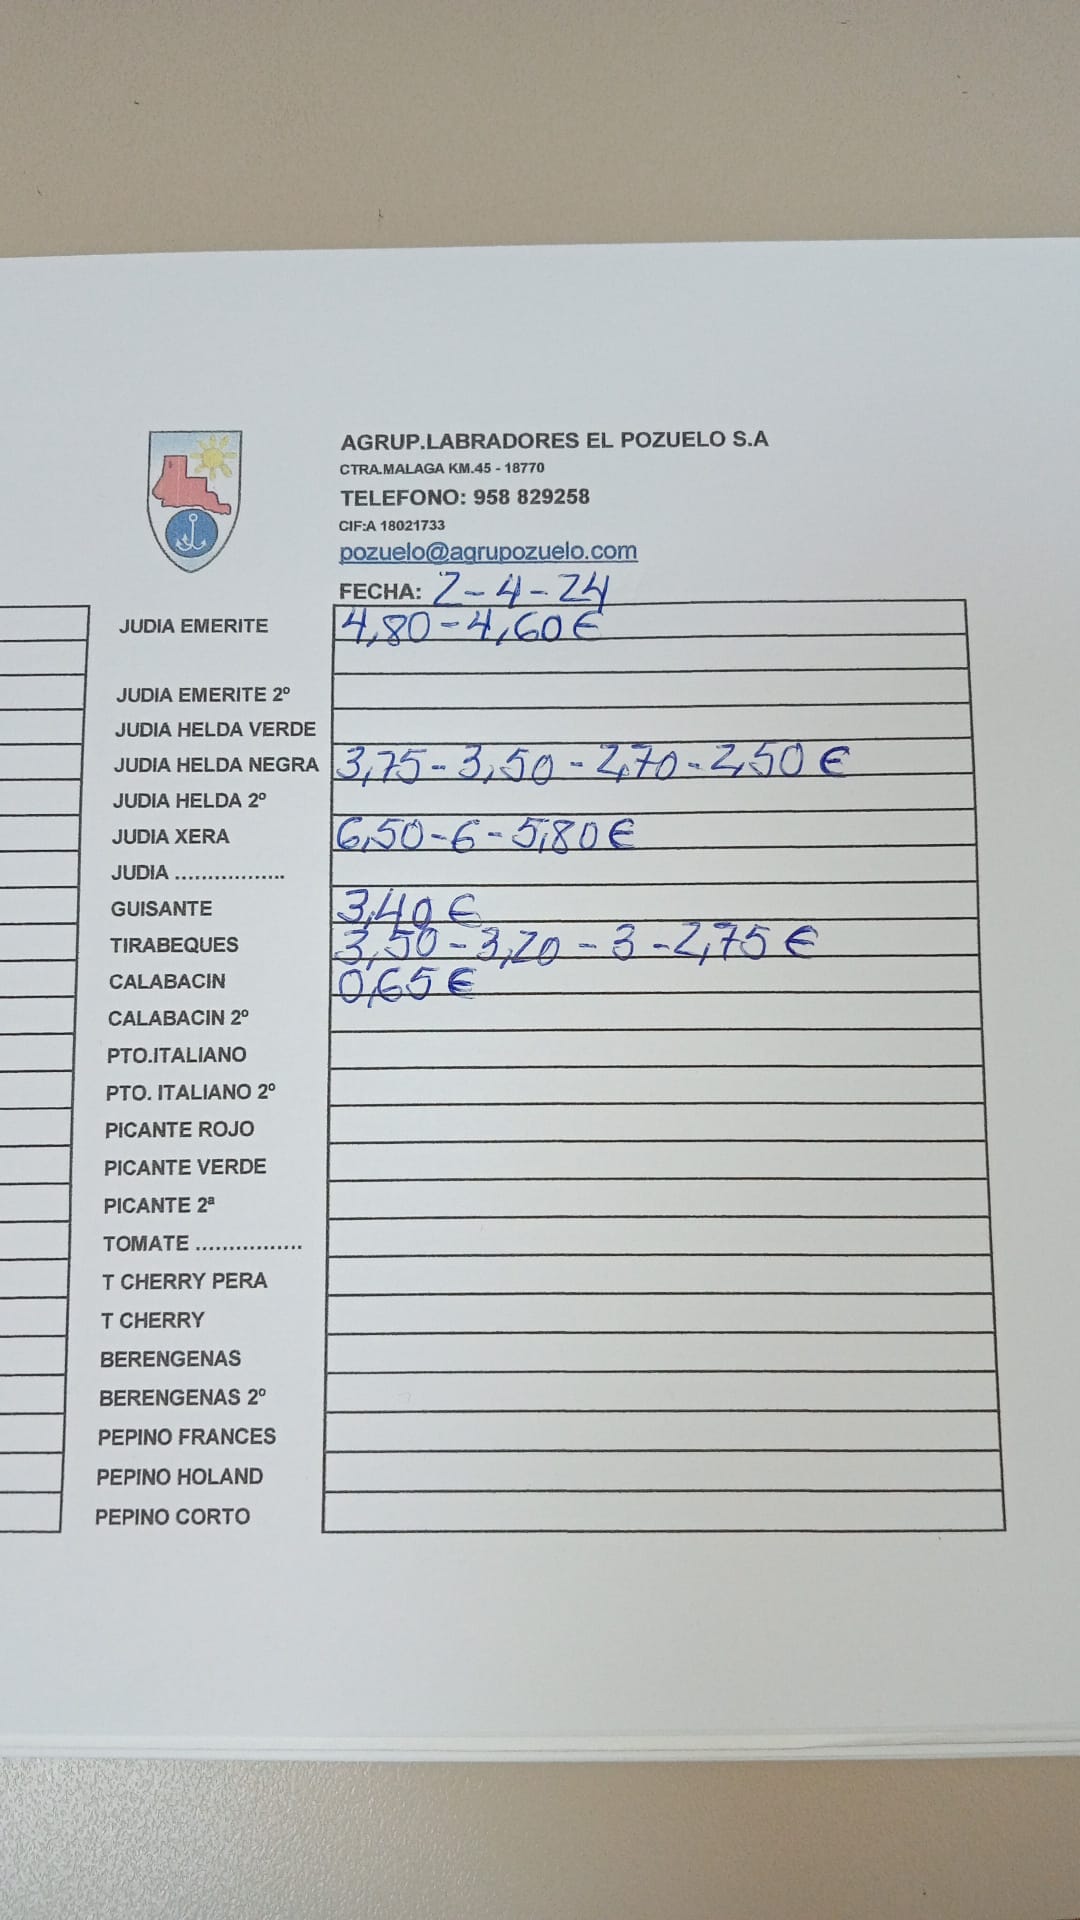 AGRUP.LABRADORES EL POZUELO S.A
CTRA.MALAGA KM.45 - 18770
TELEFONO: 958 829258
CIF:A 18021733
pozuelo@agrupozuelo.com
FECHA: 2-4-24
JUDIA EMERITE 4,80-4,60€
JUDIA EMERITE 2º
JUDIA HELDA VERDE
JUDIA HELDA NEGRA 3,75-3,50-2,70-2,50€
JUDIA HELDA 2º
JUDIA XERA 6,50-6-5,80€
JUDIA .................
GUISANTE 3,40€
TIRABEQUES 3,50-3,20-3-2,75€
CALABACIN 0,65€
CALABACIN 2º
PTO.ITALIANO
PTO. ITALIANO 2º
PICANTE ROJO
PICANTE VERDE
PICANTE 2ª
TOMATE ................
T CHERRY PERA
T CHERRY
BERENGENAS
BERENGENAS 2º
PEPINO FRANCES
PEPINO HOLAND
PEPINO CORTO